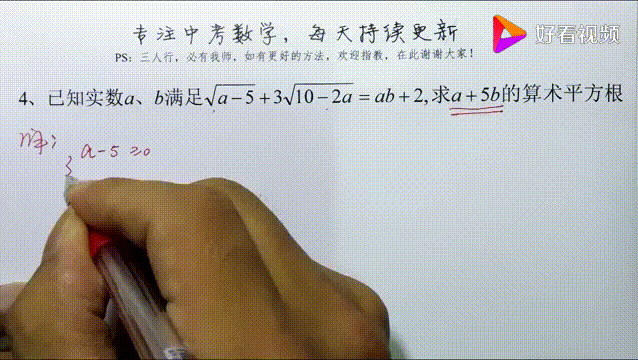 专注中考数学，每天持续更新
好看视频
PS：三人行，必有我师，如有更好的方法，欢迎指教，在此谢谢大家！
4、已知实数a、b满足√(a-5)+3√(10-2a)=ab+2,求a+5b的算术平方根
解：
a-5≥0